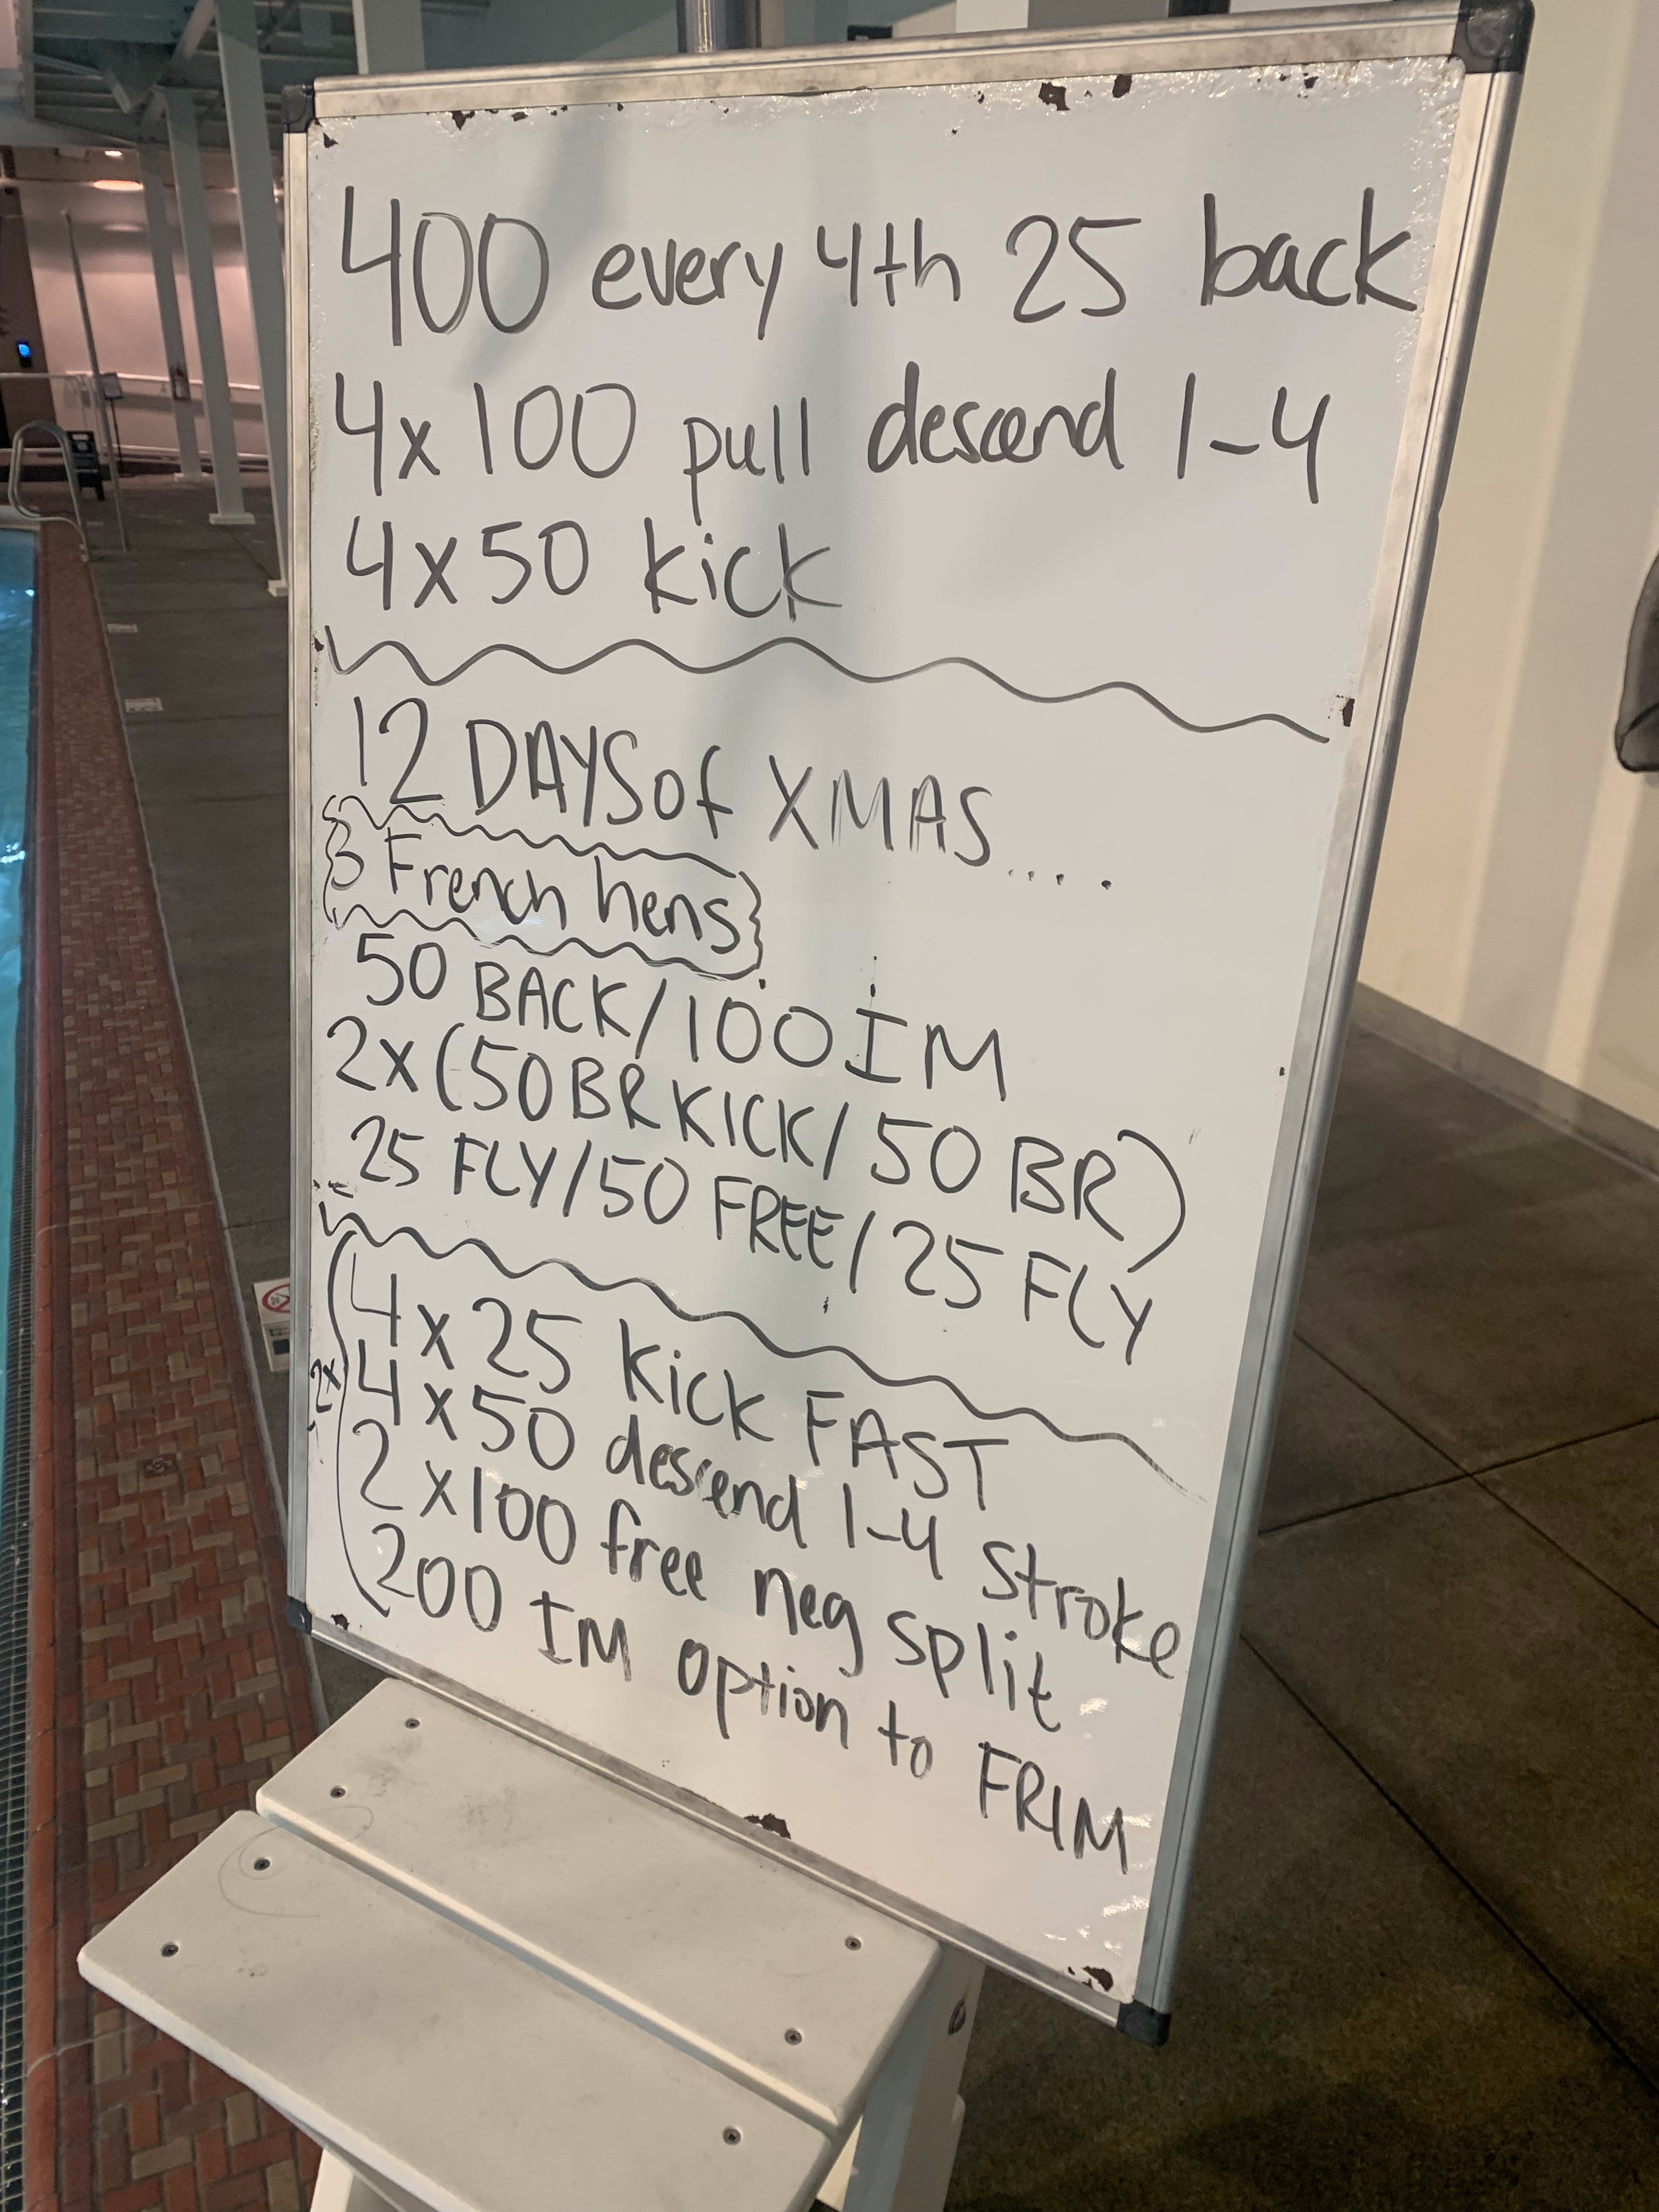 400 every 4th 25 back
4x100 pull descend 1-4
4x50 kick
12 DAYS of XMAS....
3 French hens
50 BACK/100 IM
2x(50 BR KICK/50 BR)
25 FLY/50 FREE/25 FLY
2x
4x25 Kick FAST
4x50 descend 1-4 stroke
2x100 free neg split
200 IM option to FRIM